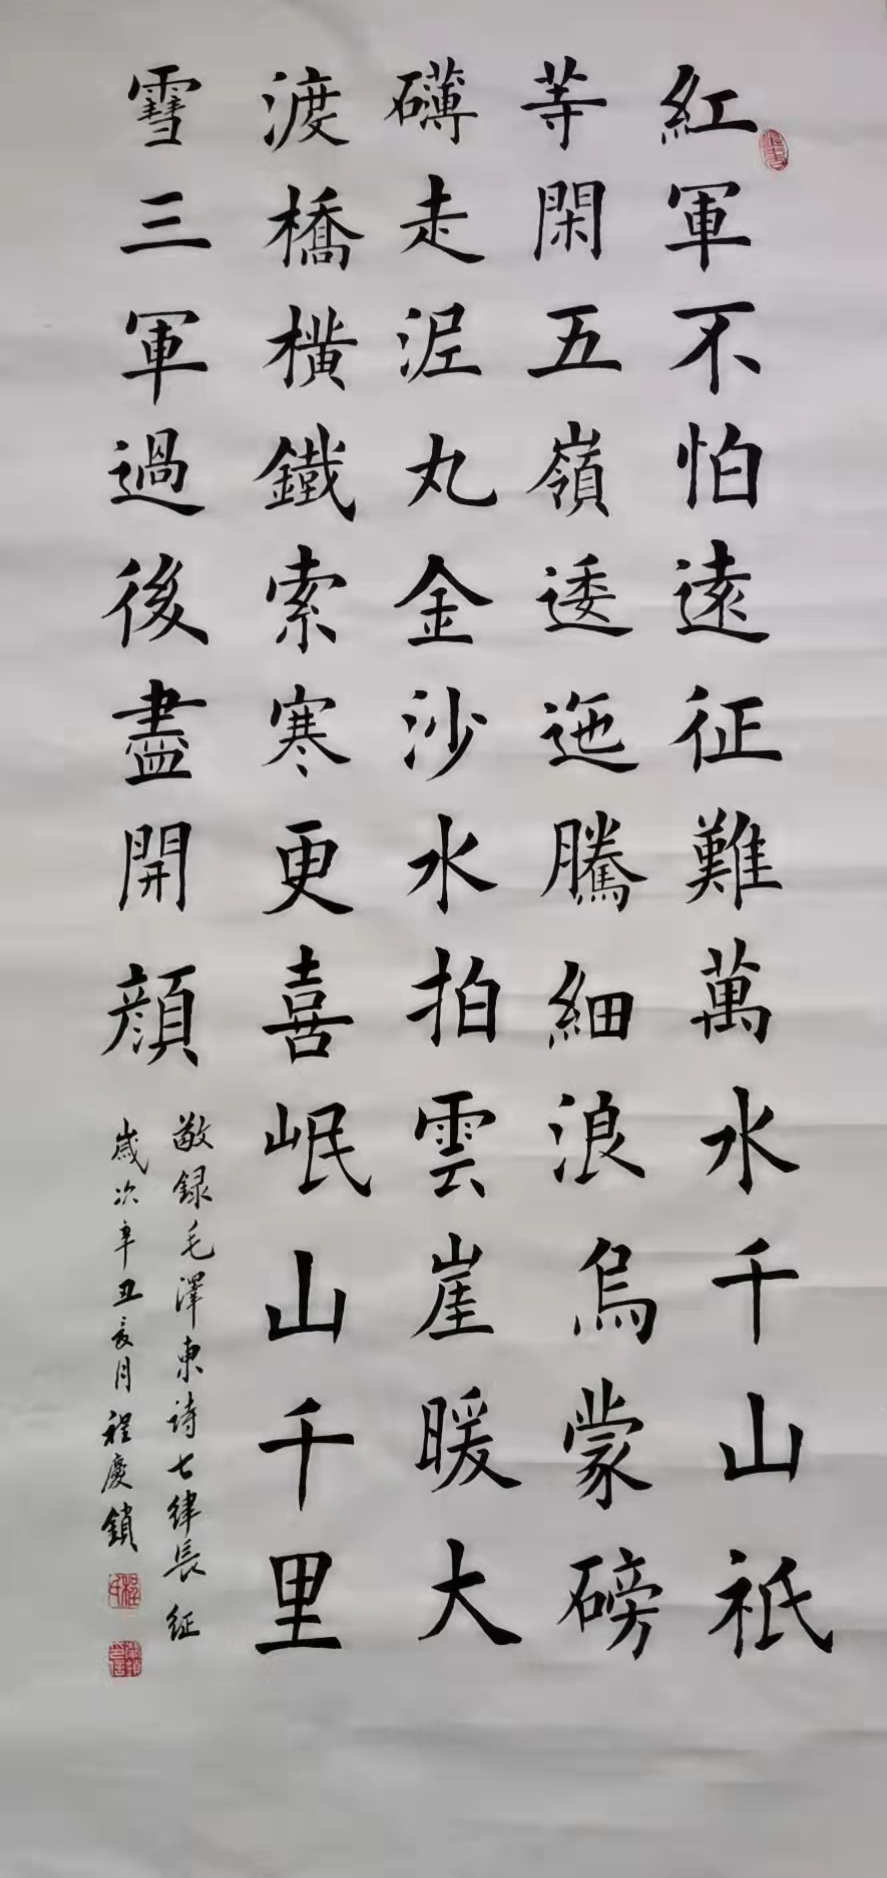 紅軍不怕遠征難萬水千山祇
等閑五嶺逶迤騰細浪烏蒙磅
礴走泥丸金沙水拍雲崖暖大
渡橋橫鐵索寒更喜岷山千里
雪三軍過後盡開顔
敬録毛澤東詩七律長征
歲次辛丑亥月程慶鎖